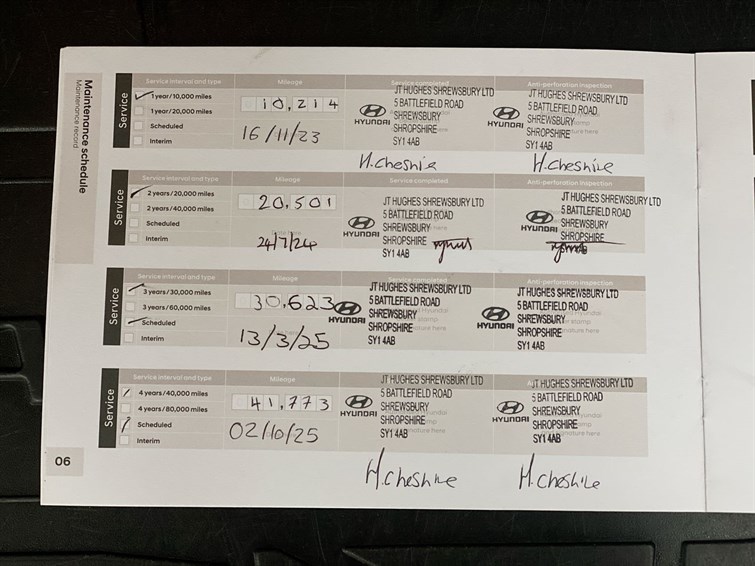 Maintenance schedule
Maintenance record
Service
Service interval and type
Mileage
Service completed
Anti-perforation inspection
1 year/10,000 miles
1 year/20,000 miles
Scheduled
Interim
10,214
16/11/23
HYUNDAI
JT HUGHES SHREWSBURY LTD
5 BATTLEFIELD ROAD
SHREWSBURY
SHROPSHIRE
SY1 4AB
H.Cheshire
HYUNDAI
JT HUGHES SHREWSBURY LTD
5 BATTLEFIELD ROAD
SHREWSBURY
SHROPSHIRE
SY1 4AB
H.Cheshire
Service
Service interval and type
Mileage
Service completed
Anti-perforation inspection
2 years/20,000 miles
2 years/40,000 miles
Scheduled
Interim
20,501
24/7/24
HYUNDAI
JT HUGHES SHREWSBURY LTD
5 BATTLEFIELD ROAD
SHREWSBURY
SHROPSHIRE
SY1 4AB
HYUNDAI
JT HUGHES SHREWSBURY LTD
5 BATTLEFIELD ROAD
SHREWSBURY
SHROPSHIRE
Service
Service interval and type
Mileage
3 years/30,000 miles
3 years/60,000 miles
Scheduled
Interim
30,623
13/3/25
HYUNDAI
JT HUGHES SHREWSBURY LTD
5 BATTLEFIELD ROAD
SHREWSBURY
SHROPSHIRE
SY1 4AB
HYUNDAI
JT HUGHES SHREWSBURY LTD
5 BATTLEFIELD ROAD
SHREWSBURY
SHROPSHIRE
SY1 4AB
Service
Service interval and type
Mileage
4 years/40,000 miles
4 years/80,000 miles
Scheduled
Interim
41,773
02/10/25
HYUNDAI
JT HUGHES SHREWSBURY LTD
5 BATTLEFIELD ROAD
SHREWSBURY
SHROPSHIRE
SY1 4AB
H.Cheshire
HYUNDAI
JT HUGHES SHREWSBURY LTD
5 BATTLEFIELD ROAD
SHREWSBURY
SHROPSHIRE
SY1 4AB
H.Cheshire
06